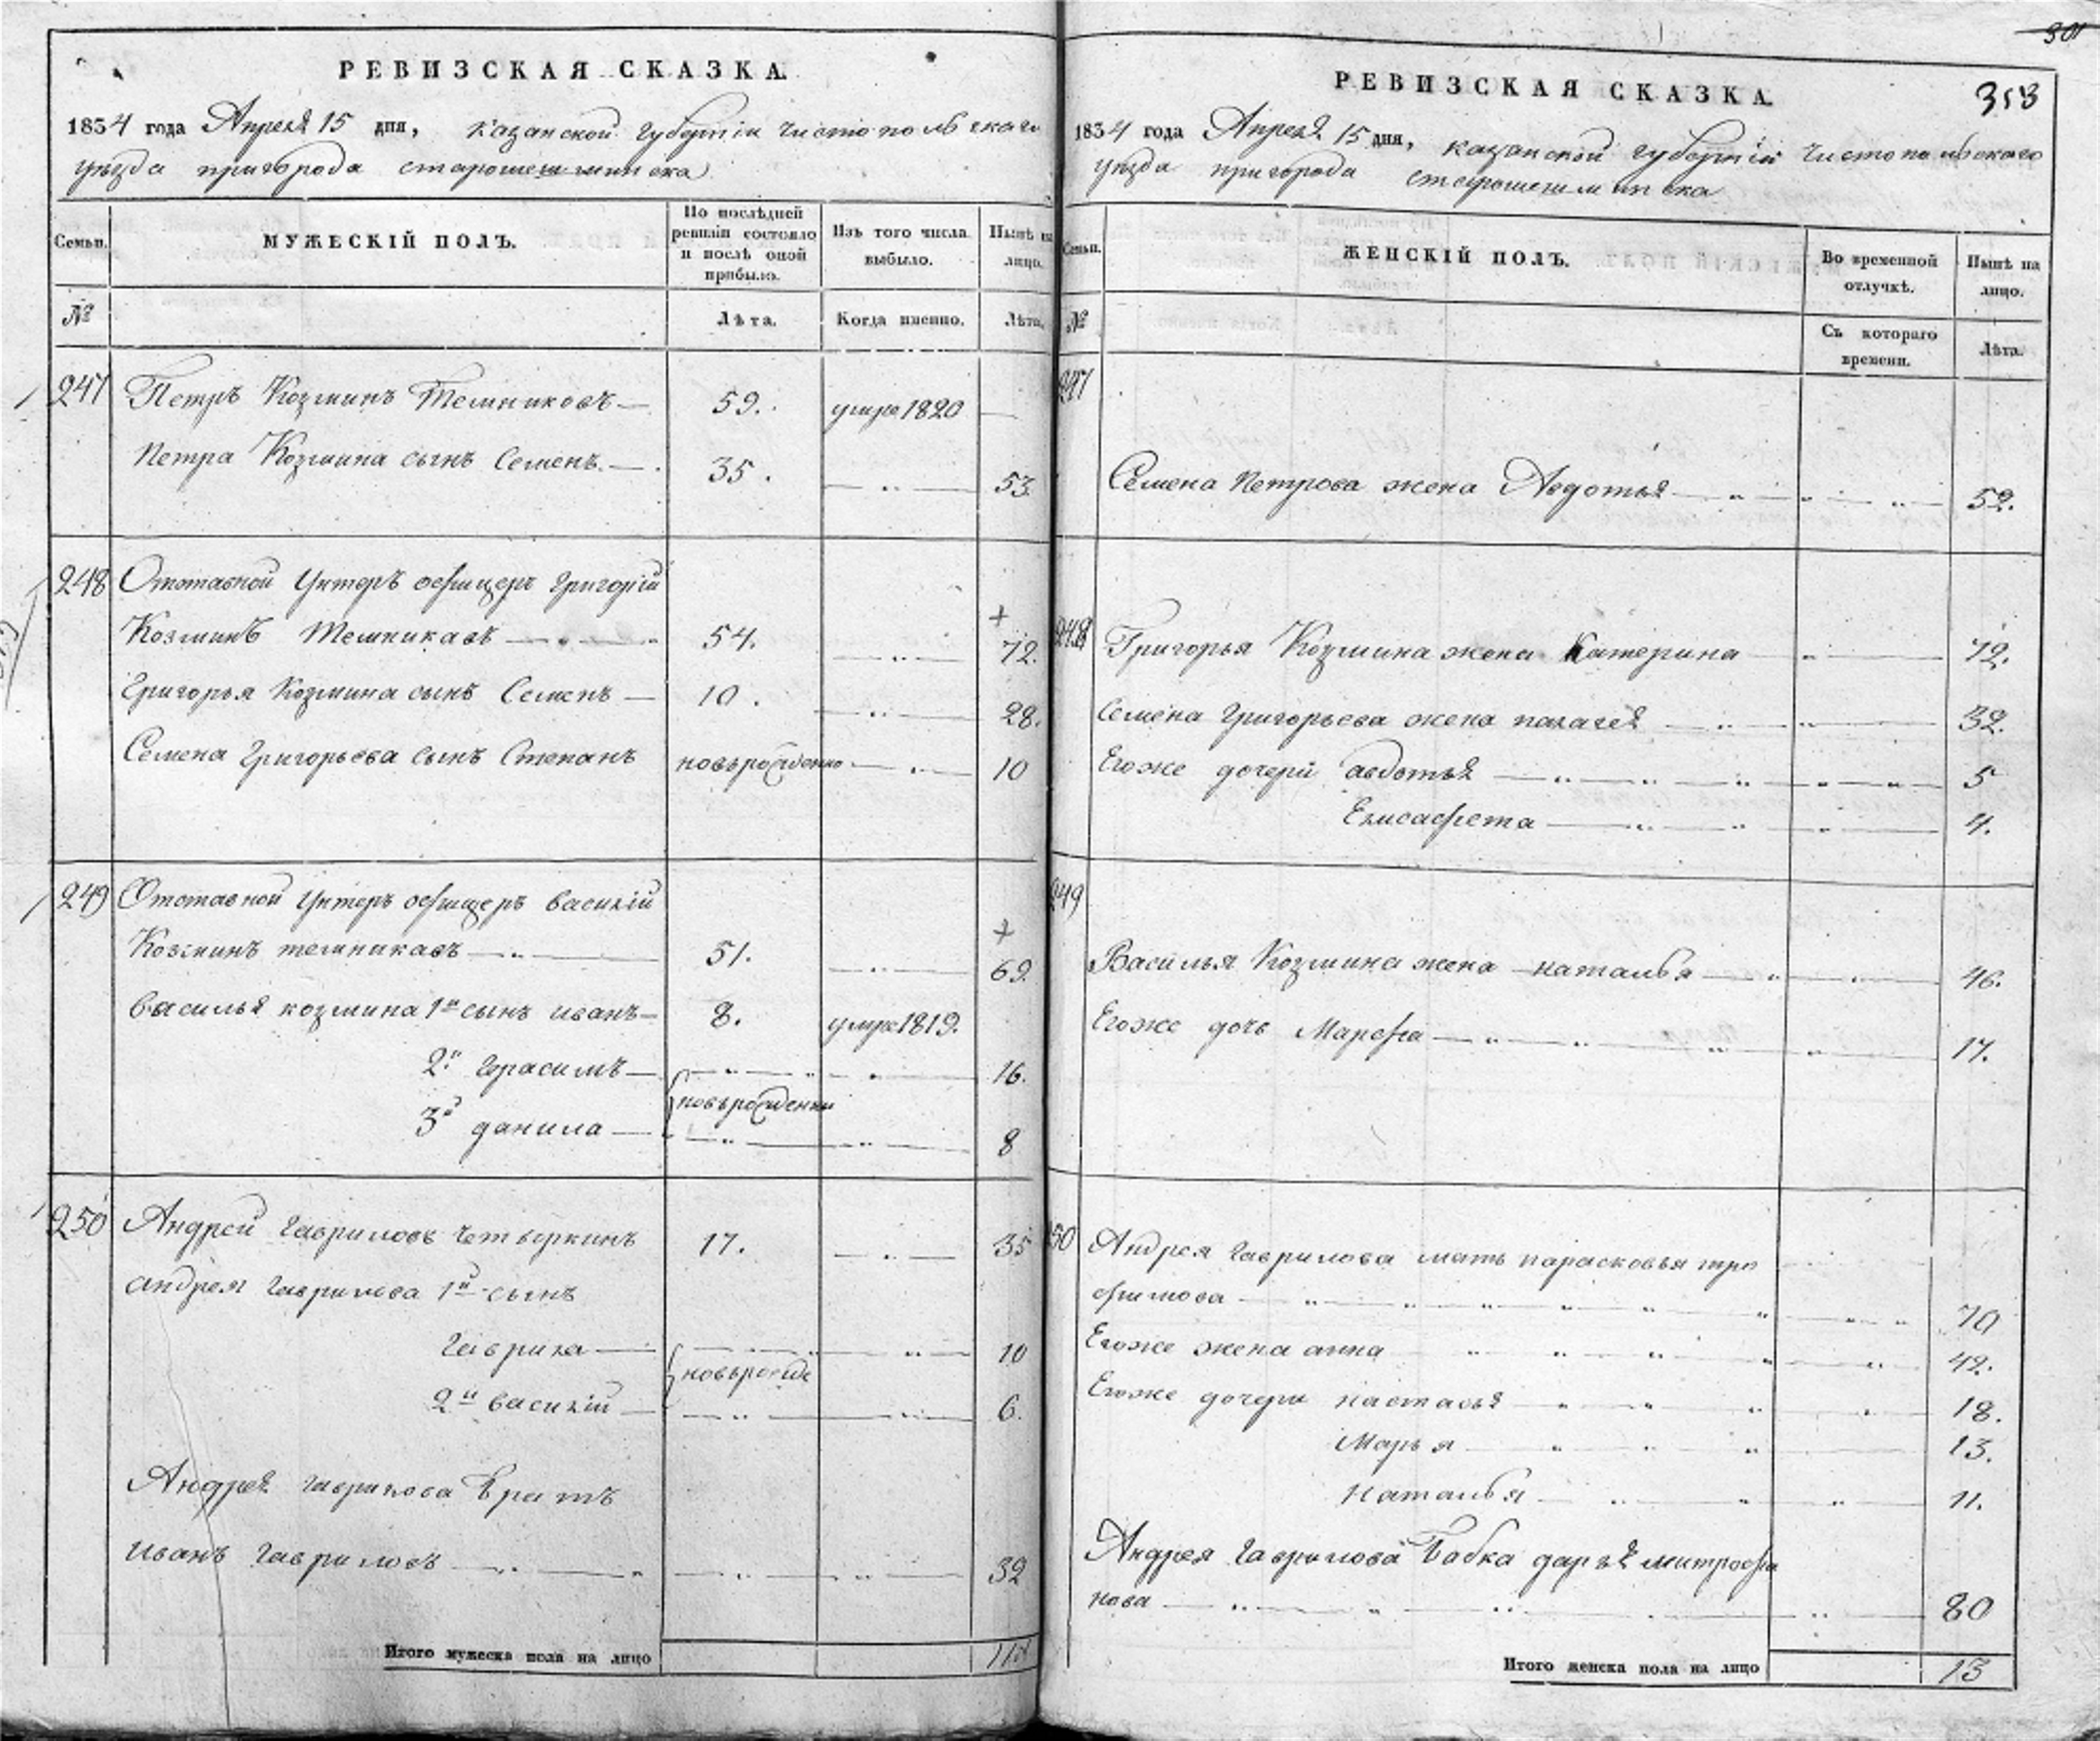 РЕВИЗСКАЯ СКАЗКА.
1834 года Апреля 15 дня, Казанской губернiи Чистопольскаго
уѣзда пригорода старошешминска
Семьи.
МУЖЕСКІЙ ПОЛЪ.
По послѣдней
ревизіи состояло
и послѣ оной
прибыло.
Изъ того числа
выбыло.
Нынѣ на
лицо.
№
Лѣта.
Когда именно.
Лѣта.
247 Петръ Козминъ Темниковъ 59. умре 1820
Петра Козмина сынъ Семенъ. 35. 53
248 Отставной Унтеръ офицеръ Григорій
Козминъ Темникавъ 54. 72.
Григорья Козмина сынъ Семенъ 10. 28.
Семена Григорьева сынъ Степанъ новърожденно 10
249 Отставной Унтеръ офицеръ василій
Козминъ темникавъ 51. 69
василья козмина 1й сынъ иванъ 8. умре 1819.
2й герасимъ 16.
новърожденни
3й данила 8
250 Андрей гавриловъ Четверкинъ 17. 35
андрея гаврилова 1й сынъ
гаврила 10
новърожде
2й василій 6.
Андрея гаврилова братъ
иванъ гавриловъ 32
Итого мужеска пола на лицо
301
353
РЕВИЗСКАЯ СКАЗКА.
1834 года Апреля 15 дня, казанской губернiи Чистопольскаго
уѣзда пригорода старошешминска
Семьи.
ЖЕНСКІЙ ПОЛЪ.
Во временной
отлучкѣ.
Нынѣ на
лицо.
№
Съ котораго
времени.
Лѣта.
247
Семена Петрова жена Авдотья 52.
248 Григорья Козмина жена Катерина 72.
Семена Григорьева жена палагея 32.
Егоже дочери авдотья 5
Елисафета 4.
249
Василья Козмина жена наталья 46.
Егоже дочь Марфа 17.
50 Андрея гаврилова мать парасковья тро
фимова 70
Егоже жена анна 42.
Егоже дочери настасья 18.
Марья 13.
Наталья 11.
Андрея гаврилова бабка дарья митрофа
нова 80
Итого женска пола на лицо 13